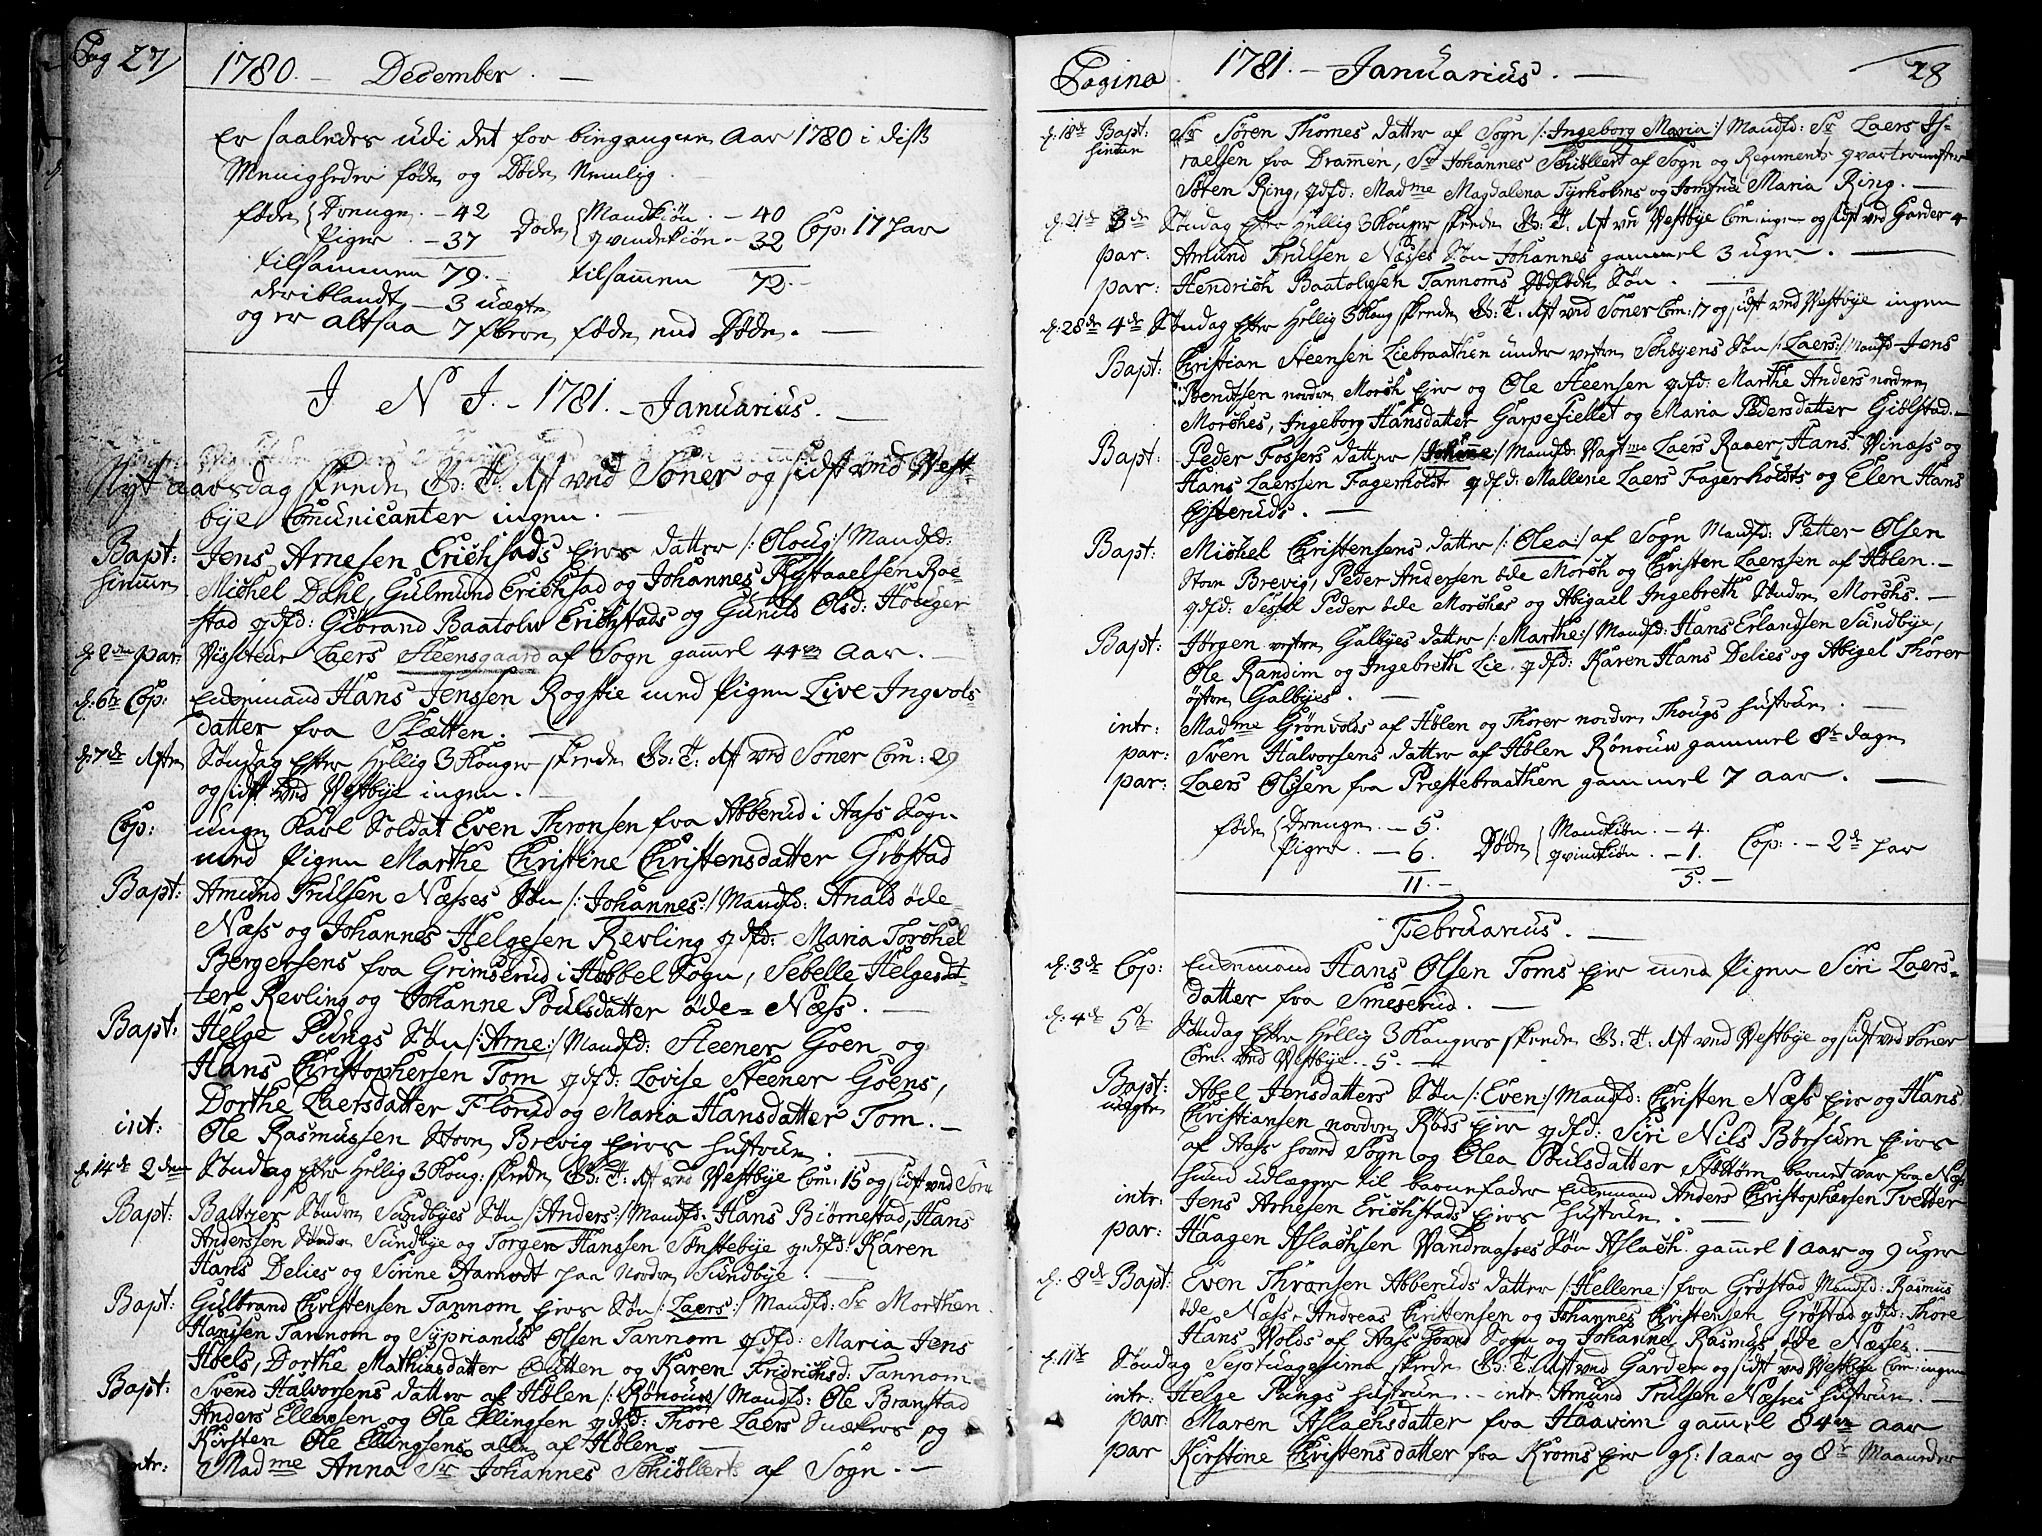 Pag 27
1780. – December. –
Er saaledes udi det for bingangun Aar 1780 i diss
Menigheder føde og Døde Nemlig.
føde Drenge. – 42 Døde Mandkiøn. – 40 Cop: 17 Par
Piger. – 37 qvindekiøn. – 32
tilsammen 79. – tilsamen 72. –
deriblandt – 3 uægte
og er altsaa 7 flere føde end Døde. –
J N J. – 1781. – Januarius. –
Nyt aarsdag skeede G: T: Ast ved Soner og sidst ved Vest-
bye Comunicanter ingen. –
Bapt: Jens Arnesen Erichstads Eies datter /:Oloug:/ Maudfd:
hiemme Michel Dahl, Gulmund Erichstad og Johannes Kystaaelsen Roe-
stad qdfd: Gibrand Baatolw Erichstads og Gunild Olsd: Houger
d: 2den par: Visiteur Laers Steensgaard af Sogn gamel 44 Aar. –
d: 6te Cop: Enkemand Hans Jenssen Rogstie med Pigen Live Ingvols
datter fra Skætten. –
d: 7de Søndag Efter Hellig 3 Konger skeede G: T: Ast ved Soner Com: 29
og sidst ved Vestbye ingen. –
Cop: unge Karl Soldat Even Thronsen fra Abberud i Aass Sogn
med Pigen Marthe Christine Christensdatter Grøstad
Bapt: Amund Trulsen Næsses Søn /:Johannes:/ Maudfd: Anald øde-
Næss og Johannes Helgesen Revling qdfd: Maria Torchel
Bergersens fra Grimserud i Hobbel Sogn, Sebelle Helgesdat-
ter Revling og Johanne Poulsdatter øde=Næss. –
Bapt: Helge Pungs Søn /:Arne:/ Maudfd: Steener Goen og
Hans Christophersen Tom qdfd: Lovise Steener Goens,
Dorthe Laersdatter Florud og Maria Hansdatter Tom. –
int: Ole Rasmussen Store Brevig Eiers hustrue. –
d: 14de 2den Søndag Efter Hellig 3 Kong: skeede G: T: Ast ved Vestbye Com: 15 og sidst ved Soner
Bapt: Baltzer Søndre Sundbyes Søn /:Anders:/ Maudfd: Hans Biørnestad, Hans
Anderssen Søndre Sundbye og Torger Hanssen Sønstebye qdfd: Karen
Hans Delies og Sirine Hamodt paa Nordre Sundbye. –
Bapt: Gulbrand Christensen Tannom Eiers Søn /:Laers:/ Maudfd: Sr Morthen
Hansen Tannom og Syprianus Olssen Tannom qdfd: Maria Jens
Hoels, Dorthe Mathiasdatter Enkken og Karen Fridrichsd: Tannom
Bapt: Svend Halvorsens datter af Hølen /:Rønouw:/ Maudfd: Ole Branstad
Anders Ellewsen og Ole Ellingsen qdfd: Thore Laers Snekers og
Kirsten Ole Ellingsens alle af Hølen. –
intr: Madme Anna Sr Johannes Schiøllerts af Sogn. –
Pagina 1781. – Januarius. – 28
d: 18de Bapt: Sr Søren Thomes datter af Sogn /:Ingeborg Maria:/ Maudfd: Sr Laers Js-
hiemme raelsen fra Dramen, Sr Johannes Schiøllert af Sogn og Regiments qvarteermester
Søren Ring, qdfd: Madme Magdalena Tyrholms og Jomfrue Maria Ring. –
d: 21de 3de Søndag Efter Hellig 3 Konger skeede G: T: Ast ved Vestbye Com: ingen og sidst ved Garder 4
par: Amund Trulsen Næsses Søn Johannes gammel 3 uger. –
par: Hendrich Baatolvsen Tannoms Dødfødte Søn. –
d: 28de 4de Søndag Efter Hellig 3 Kong skeede G: T: Ast ved Soner Com: 17 og sidst ved Vestbye ingen
Bapt: Christian Steensen Liebraathen under vestre Schøyens Søn /:Laers:/ Maudfd: Jens
Bendtsen nordre Morch Eier og Ole Steensen qdfd: Marthe Anders nordre
Morches, Ingeborg Hansdatter Garpefiellet og Maria Pedersdatter Giølstad. –
Bapt: Peder Fossers datter /:Johanne:/ Maudfd: Vagtme Laers Raaer, Hans Vinæss og
Hans Laerssen Fagerholdt qdfd: Mallene Laers Fagerholdts og Elen Hans
Esteruds. –
Bapt: Michel Christensens datter /:Olea:/ af Sogn Maudfd: Petter Olsen
Store Brevig, Peder Andersen øde Morch og Christen Laerssen af Hølen. –
qdfd: Sessel Peder øde Morches og Abigael Ingebreth Søndre Morchs. –
Bapt: Jørgen vestre Galbyes datter /:Marthe:/ Maudfd: Hans Erlandsen Sundbye,
Ole Randim og Ingebreth Lie qdfd: Karen Hans Delies og Abigel Thorer
østre Galbyes. –
intr: Madme Grønvolds af Hølen og Thorer nordre Thougs hustrue. –
par: Sven Halvorsens datter af Hølen Rønouw gammel 8te dage
par: Laers Olssen fra Præstebraathen gammel 7 aar. –
føde Drenge – 5. Døde Mandkiøn. – 4. Cop: – 2de par
Piger – 6. qvindkiøn. – 1.
11. – 5. –
Februarius. –
d: 3de Cop: Enkemand Hans Olsen Toms Eier med Pigen Siri Laers-
datter fra Smeserud. –
d: 4de 5te Søndag Efter Hellig 3 Kongers skeede G: T: Ast ved Vestbye og sidst ved Soner
Com: ved Vestbye. 5. –
Bapt: Abel Jensdatters Søn /:Even:/ Maudfd: Christen Næss Eier og Hans
uægte Christiansen nordre Røds Eier qdfd: Siri Nils Børsum Eiers
af Aass hoved Sogn og Olea Poulsdatter Støttøm barnet var fra Næss
hund udlægger til barnefader Enkemand Anders Christophersen Tvetter
intr: Jens Arnesen Erichstads Eiers hustrue. –
par: Haagen Aslachsen Vandragsses Søn Aslach. gamel 1 Aar og 9 uger
d: 8de Bapt: Even Thronsen Abberuds datter /:Hellene:/ fra Grøstad Maudfd: Rasmus
øde Næss, Andreas Christensen og Johannes Christensen Grøstad qdfd: Thore
Hans Wolds af Aass hoved Sogn og Johanne Rasmus øde Næsses. –
d: 11te Søndag Septuagesima skeede G: T: Ast ved Garder og sidst ved Vestbye Com: ingen
intr: Helge Pungs hustrue. – intr: Amund Trulsen Næsses hustrue. –
par Maren Aslachsdatter fra Haavim gamel 84 aar
par Kirstine Christensdatter fra Kroms Eier gl: 1 aar og 8te Maaneder